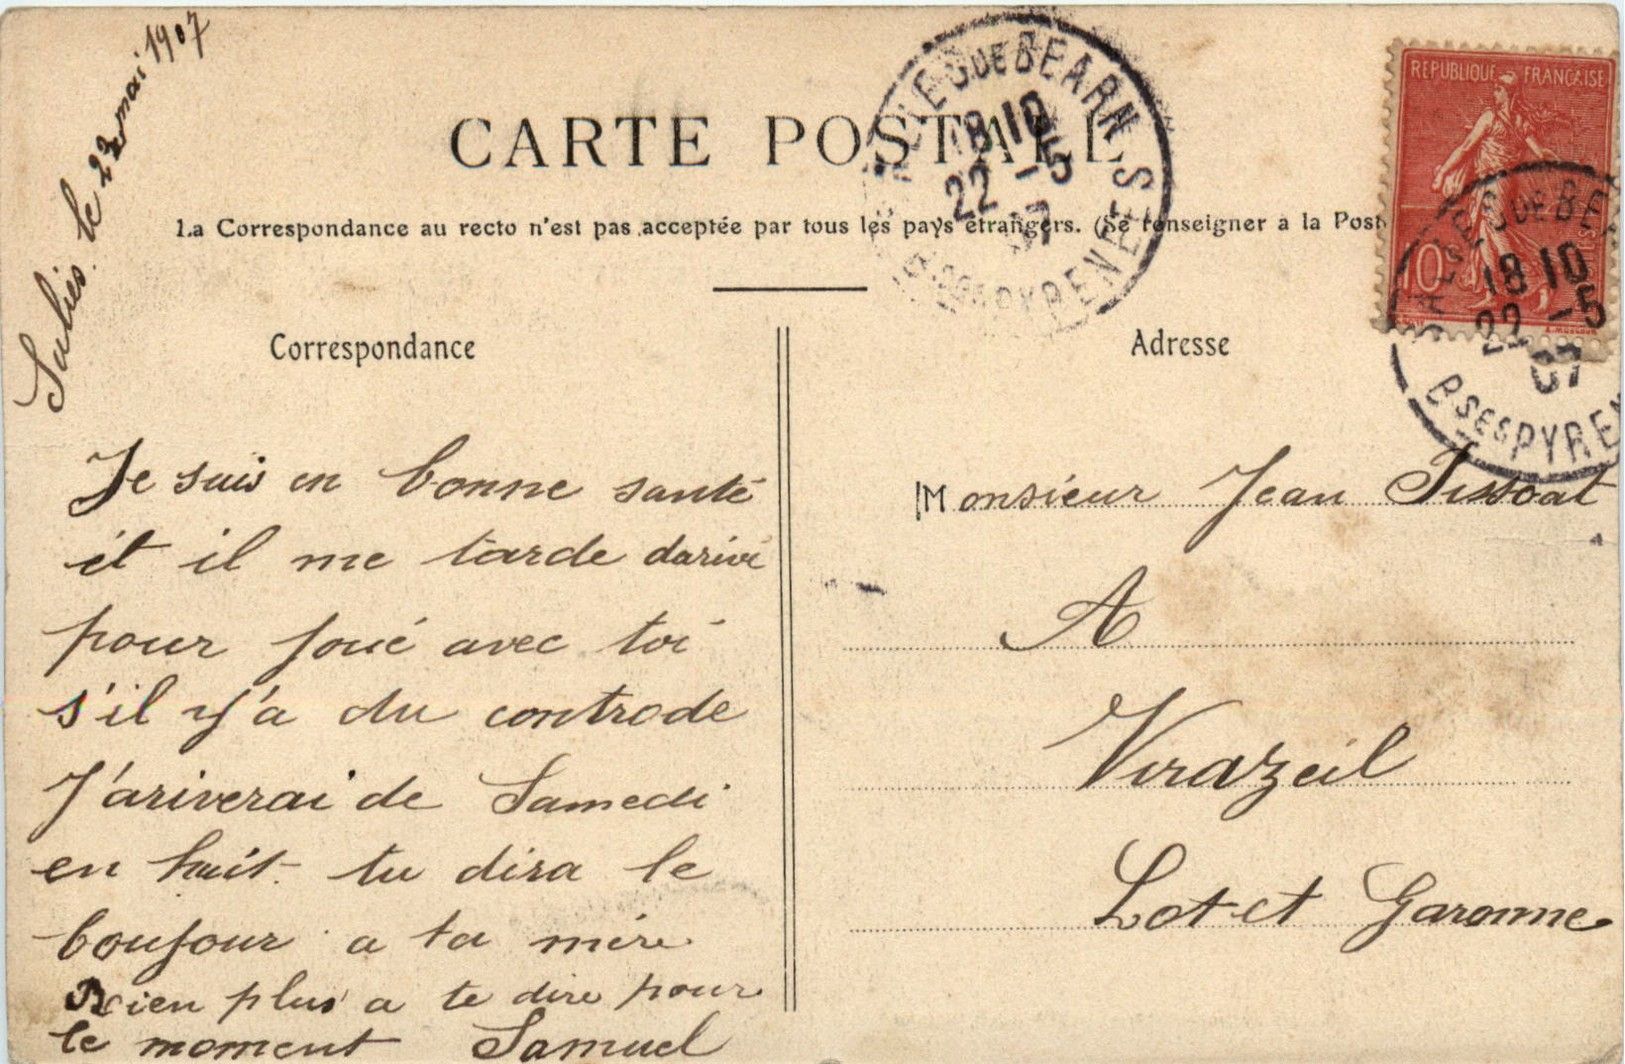 Salies le 22 mai 1907
CARTE POSTALE
La Correspondance au recto n'est pas acceptée par tous les pays étrangers. (Se renseigner a la Post
SALIES DE BEARN
18 10
22 -5
07
BSES PYRENEES
REPUBLIQUE FRANÇAISE
10
SALIES DE BEA
18 10
22 -5
07
BSES PYREN
Correspondance
Adresse
Je suis en bonne santé
et il me tarde darivé
pour joué avec toi
s'il y'a du controde
J'ariverai de Samedi
en huit tu dira le
boujour a ta mère
Rien plus a te dire pour
le moment Samuel
Monsieur Jean Tissoat
A
Virazeil
Lot et Garonne